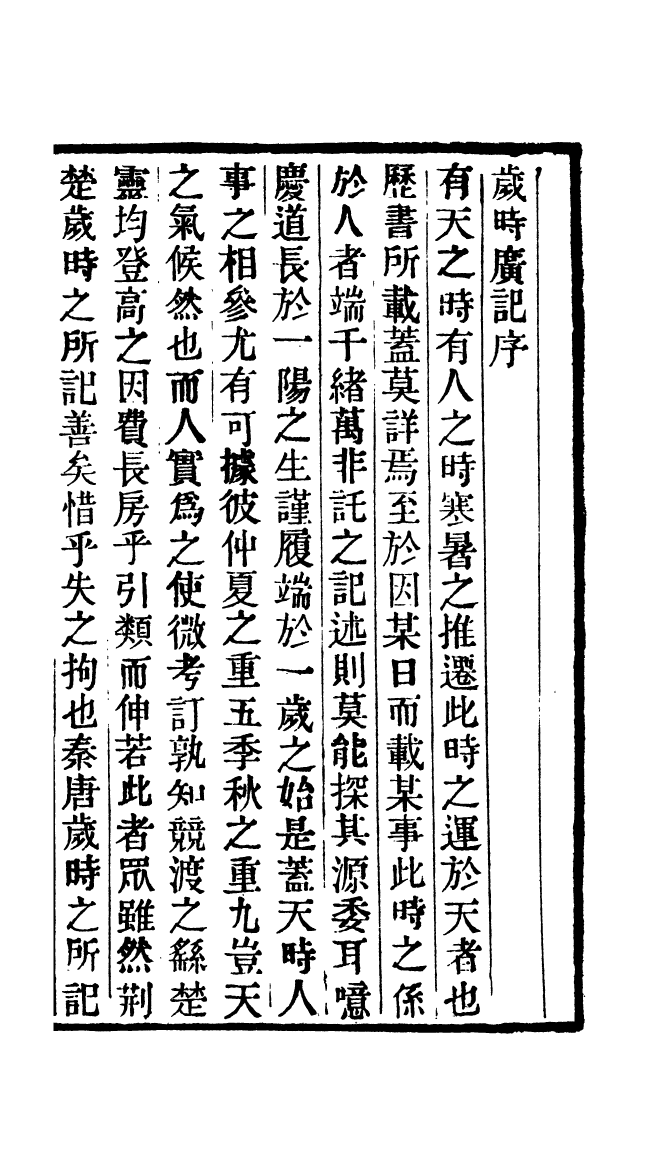 歲時廣記序
有天之時有人之時寒暑之推遷此時之運於天者也
歷書所載蓋莫詳焉至於因某日而載某事此時之係
於人者端千緖萬非託之記述則莫能探其源委耳噫
慶道長於一陽之生謹履端於一歲之始是蓋天時人
事之相參尤有可據彼仲夏之重五季秋之重九豈天
之氣候然也而人實爲之使微考訂孰知競渡之繇楚
靈均登高之因費長房乎引類而伸若此者眾雖然荆
楚歲時之所記善矣惜乎失之拘也秦唐歲時之所記